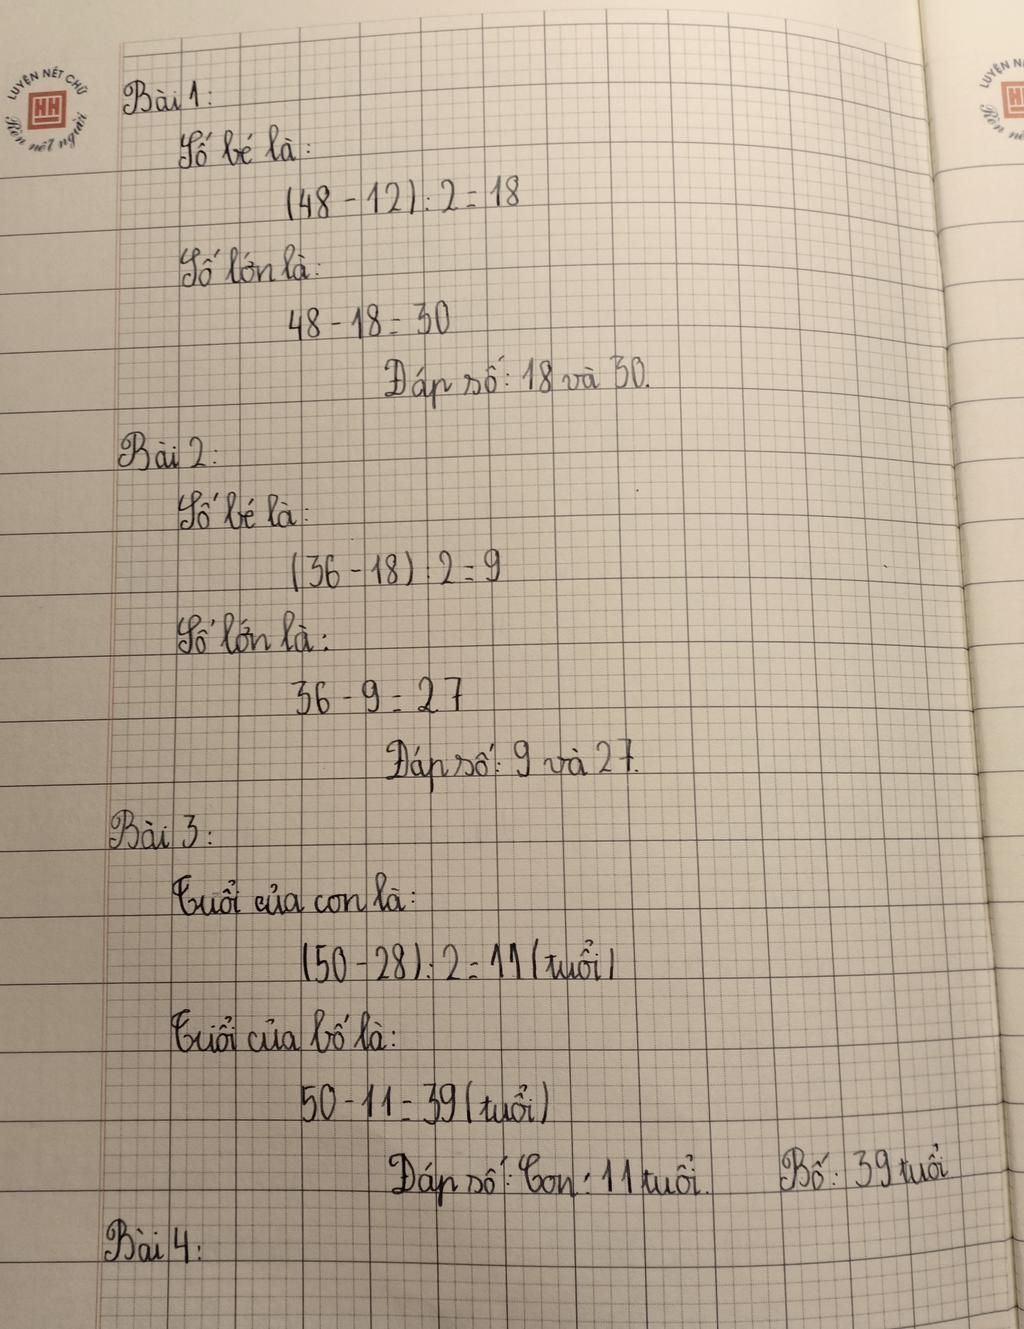 LUYỆN NÉT CHỮ
HH
Rèn nết người
Bài 1:
Số bé là:
(48 - 12) : 2 = 18
Số lớn là:
48 - 18 = 30
Đáp số: 18 và 30.
Bài 2:
Số bé là:
(36 - 18) : 2 = 9
Số lớn là:
36 - 9 = 27
Đáp số: 9 và 27.
Bài 3:
Tuổi của con là:
(50 - 28) : 2 = 11 (tuổi)
Tuổi của bố là:
50 - 11 = 39 (tuổi)
Đáp số: Con: 11 tuổi. Bố: 39 tuổi
Bài 4:
LUYỆN N
H
Rèn nế